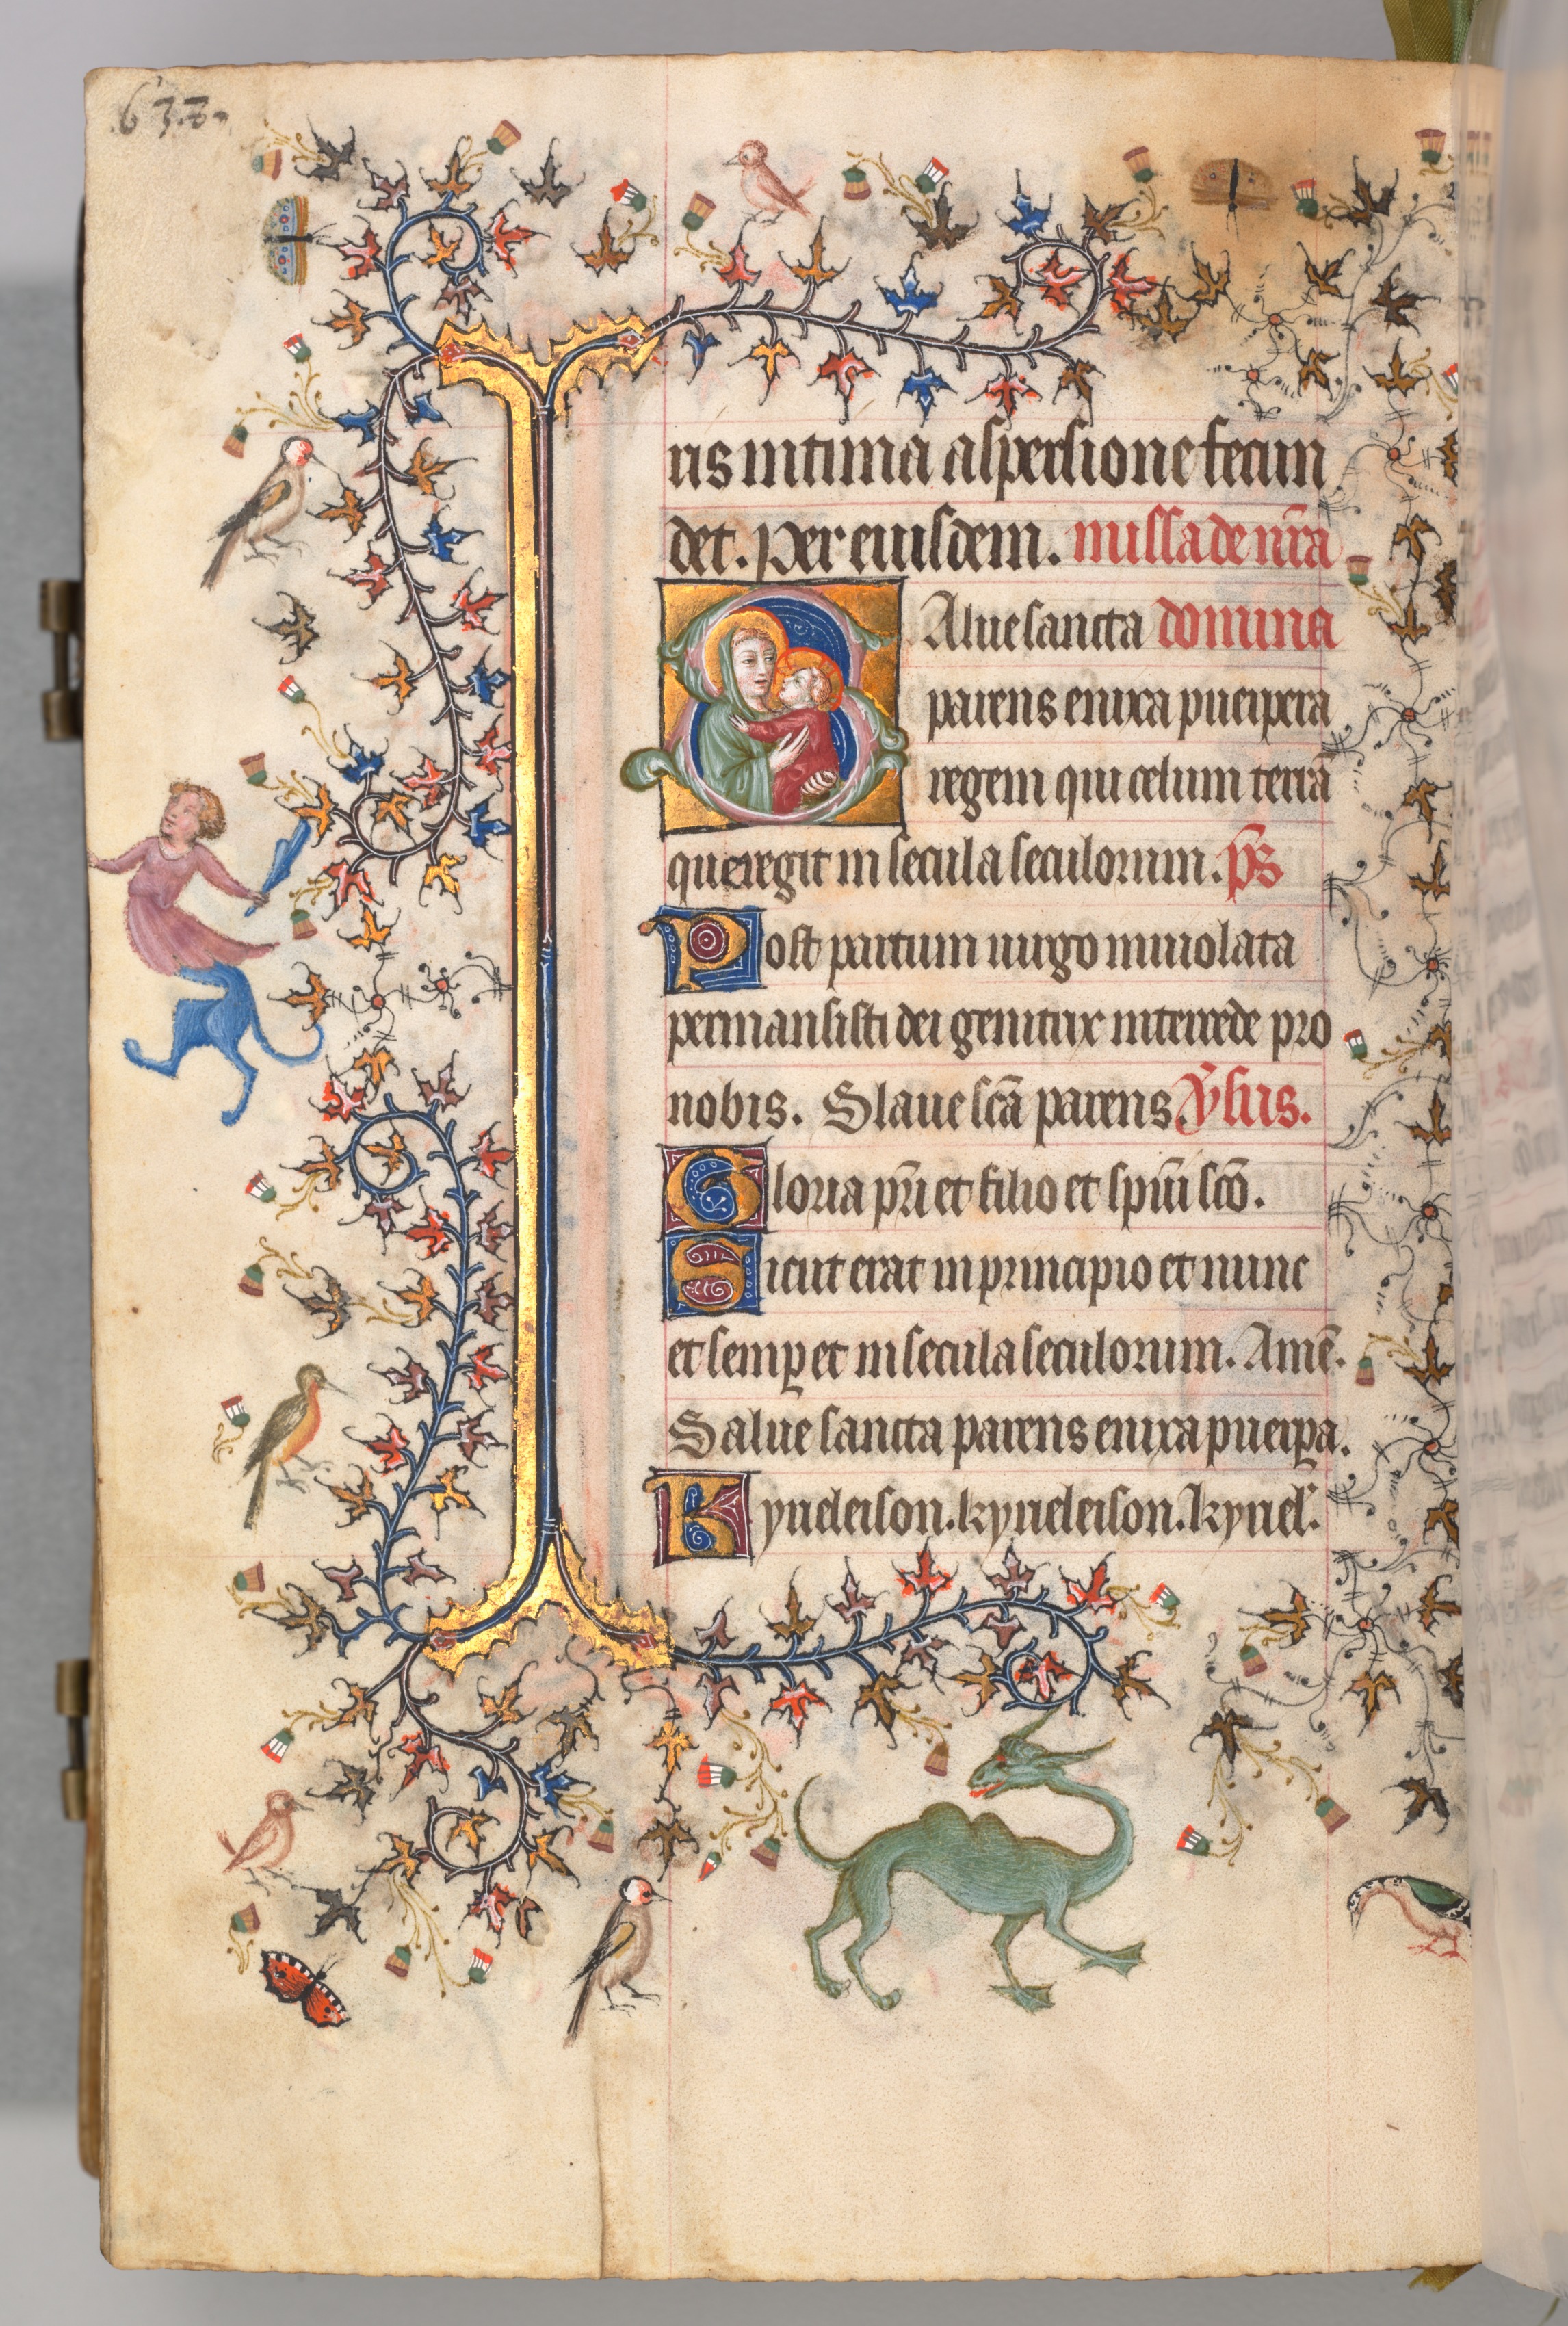 632
ris intima aspersione fecun
det. Per eiusdem. missa de nr̄a
Salue sancta domina
parens enixa puerpera
regem qui celum terrā
que regit in secula seculorum. ps̄
Post partum uirgo inuiolata
permansisti dei genitrix intercede pro
nobis. Slaue scā parens. v̄sus.
Gloria pr̄i et filio et spūi scō.
Sicut erat in principio et nunc
et semp et in secula seculorum. Amē.
Salue sancta parens enixa puerpa.
Kyrieleison. kyrieleison. kyriel'.